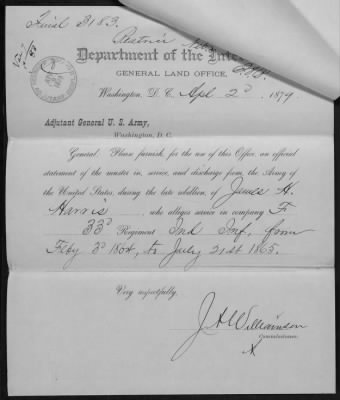 Final 3183.
Beatrice Neb.
Department of the Inte
GENERAL LAND OFFICE,
Washington, D. C. Apl 2d, 1879
Adjutant General U. S. Army,
Washington, D. C.
General: Please furnish, for the use of this Office, an official
statement of the muster in, service, and discharge from, the Army of
the United States, during the late rebellion, of James H.
Harris, who alleges service in company F
33d Regiment Ind Inf, from
Feby 3d 1864, to July 21st 1865.
Very respectfully,
J A Williamson
Commissioner.